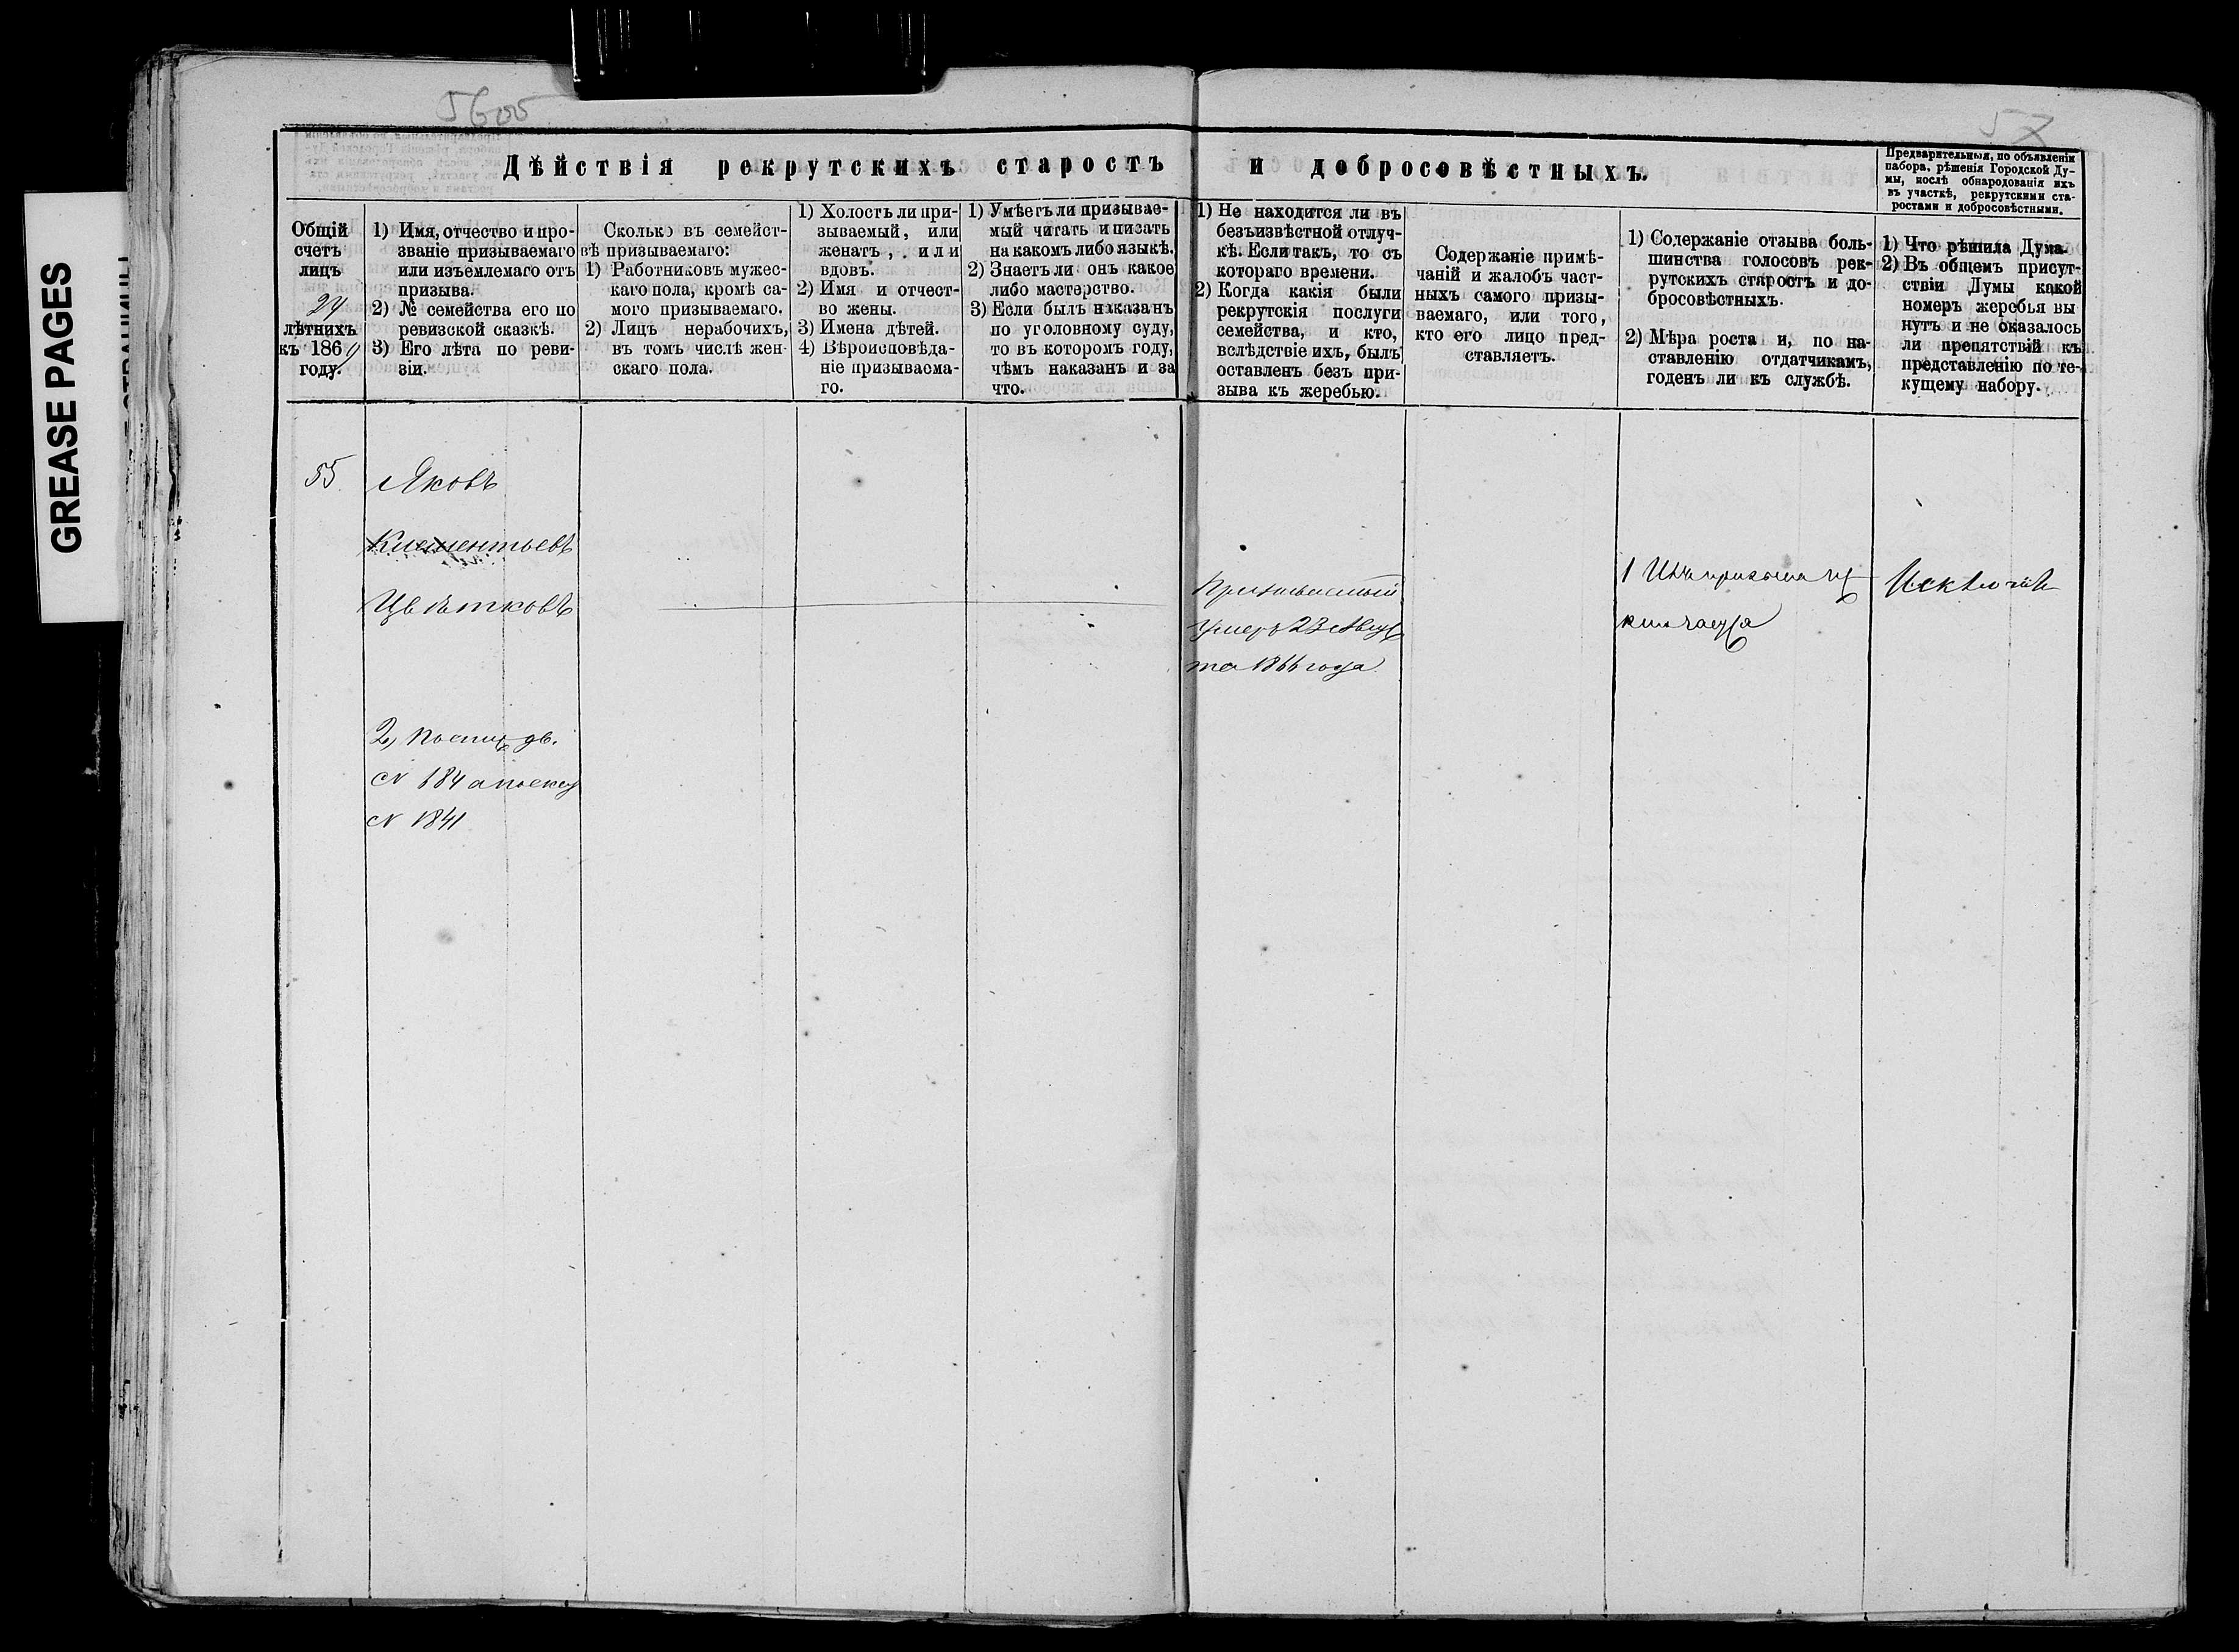 GREASE PAGES
56об
57
Дѣйствія рекрутскихъ старостъ и добросовѣстныхъ.
Предварительныя, по объявленіи
набора, рѣшенія Городской Ду-
мы, послѣ обнародованія ихъ
въ участкѣ, рекрутскими ста-
ростами и добросовѣстными.
Общій
счетъ
лицъ
24
лѣтнихъ
къ 1869
году.
1) Имя, отчество и про-
званіе призываемаго
или изъемлемаго отъ
призыва.
2) № семейства его по
ревизской сказкѣ.
3) Его лѣта по реви-
зіи.
Сколько въ семейст-
вѣ призываемаго:
1) Работниковъ мужес-
каго пола, кромѣ са-
мого призываемаго.
2) Лицъ нерабочихъ,
въ томъ числѣ жен-
скаго пола.
1) Холостъ ли при-
зываемый, или
женатъ, или
вдовъ.
2) Имя и отчест-
во жены.
3) Имена дѣтей.
4) Вѣроисповѣда-
ніе призываема-
го.
1) Умѣетъ ли призывае-
мый читать и писать
на какомъ либо языкѣ.
2) Знаетъ ли онъ какое
либо мастерство.
3) Если былъ наказанъ
по уголовному суду,
то въ которомъ году,
чѣмъ наказанъ и за
что.
1) Не находится ли въ
безъизвѣстной отлуч-
кѣ. Если такъ, то съ
котораго времени.
2) Когда какія были
рекрутскія послуги
семейства, и кто,
вслѣдствіе ихъ, былъ
оставленъ безъ при-
зыва къ жеребью.
Содержаніе примѣ-
чаній и жалобъ част-
ныхъ самого призы-
ваемаго, или того,
кто его лицо пред-
ставляетъ.
1) Содержаніе отзыва боль-
шинства голосовъ рек-
рутскихъ старостъ и до-
бросовѣстныхъ.
2) Мѣра роста и, по на-
ставленію отдатчикамъ,
годенъ ли къ службѣ.
1) Что рѣшила Дума.
2) Въ общемъ присут-
ствіи Думы какой
номеръ жеребья вы
нутъ и не оказалось
ли препятствій къ
представленію по те-
кущему набору.
55.
Яковъ
Климентьевъ
Цвѣтковъ
2)
№ 184
№ 1841
Призываемый
умеръ 23 Авгус
та 1866 года
1 Изъ призыва ис
ключается
Исключить